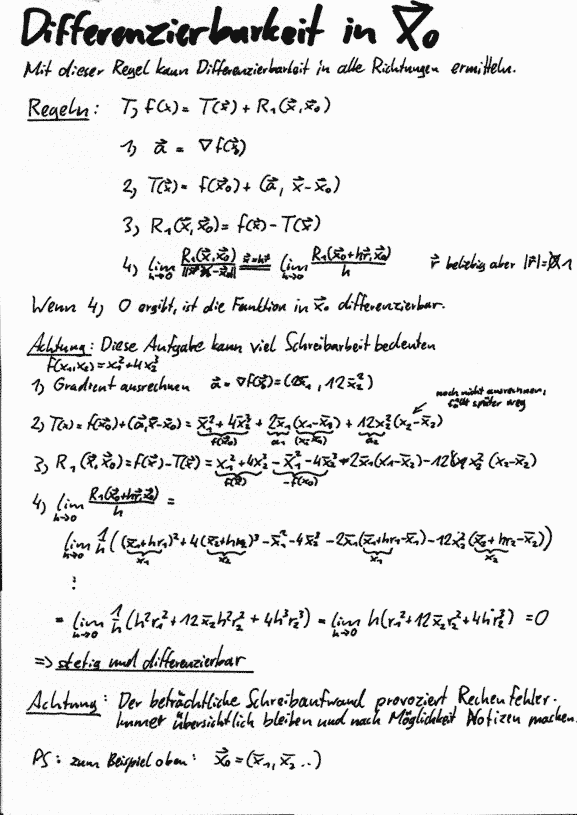 Differenzierbarkeit in x⃗₀
Mit dieser Regel kann Differenzierbarkeit in alle Richtungen ermitteln.
Regeln: T, f(x) = T(x⃗) + R₁(x⃗, x⃗₀)
1) a⃗ = ∇f(x⃗₀)
2) T(x⃗) = f(x⃗₀) + (a⃗, x⃗-x⃗₀)
3) R₁(x⃗, x⃗₀) = f(x⃗) - T(x⃗)
4) lim h→0 R₁(x⃗, x⃗₀)/||x⃗-x⃗₀|| x⃗=hr⃗ = lim h→0 R₁(x⃗₀+hr⃗, x⃗₀)/h r⃗ beliebig aber |r⃗|=1
Wenn 4) 0 ergibt, ist die Funktion in x⃗₀ differenzierbar.
Achtung: Diese Aufgabe kann viel Schreibarbeit bedeuten
f(x₁,x₂) = x₁²+4x₂³
1) Gradient ausrechnen a⃗ = ∇f(x⃗₀) = (2x̄₁, 12x̄₂²)
noch nicht ausrechnen,
fällt später weg
2) T(x) = f(x⃗₀)+(a⃗,x⃗-x⃗₀) = x̄₁²+4x̄₂³ + 2x̄₁(x₁-x̄₁) + 12x̄₂²(x₂-x̄₂)
f(x⃗₀) a₁ (x⃗-x⃗₀) a₂
3) R₁(x⃗,x⃗₀) = f(x⃗)-T(x⃗) = x₁²+4x₂³-x̄₁²-4x̄₂³-2x̄₁(x₁-x̄₁)-12x̄₂²(x₂-x̄₂)
f(x⃗) -f(x₀)
4) lim h→0 R₁(x⃗₀+hr⃗, x⃗₀)/h =
lim h→0 1/h ((x̄₁+hr₁)²+4(x̄₂+hr₂)³-x̄₁²-4x̄₂³-2x̄₁(x̄₁+hr₁-x̄₁)-12x̄₂²(x̄₂+hr₂-x̄₂))
x₁ x₂ x₁ x₂
:
= lim h→0 1/h (h²r₁²+12x̄₂h²r₂²+4h³r₂³) = lim h→0 h(r₁²+12x̄₂r₂²+4hr₂³) = 0
=> stetig und differenzierbar
Achtung: Der beträchtliche Schreibaufwand provoziert Rechenfehler.
Immer übersichtlich bleiben und nach Möglichkeit Notizen machen.
PS: zum Beispiel oben: x⃗₀ = (x̄₁, x̄₂ ..)